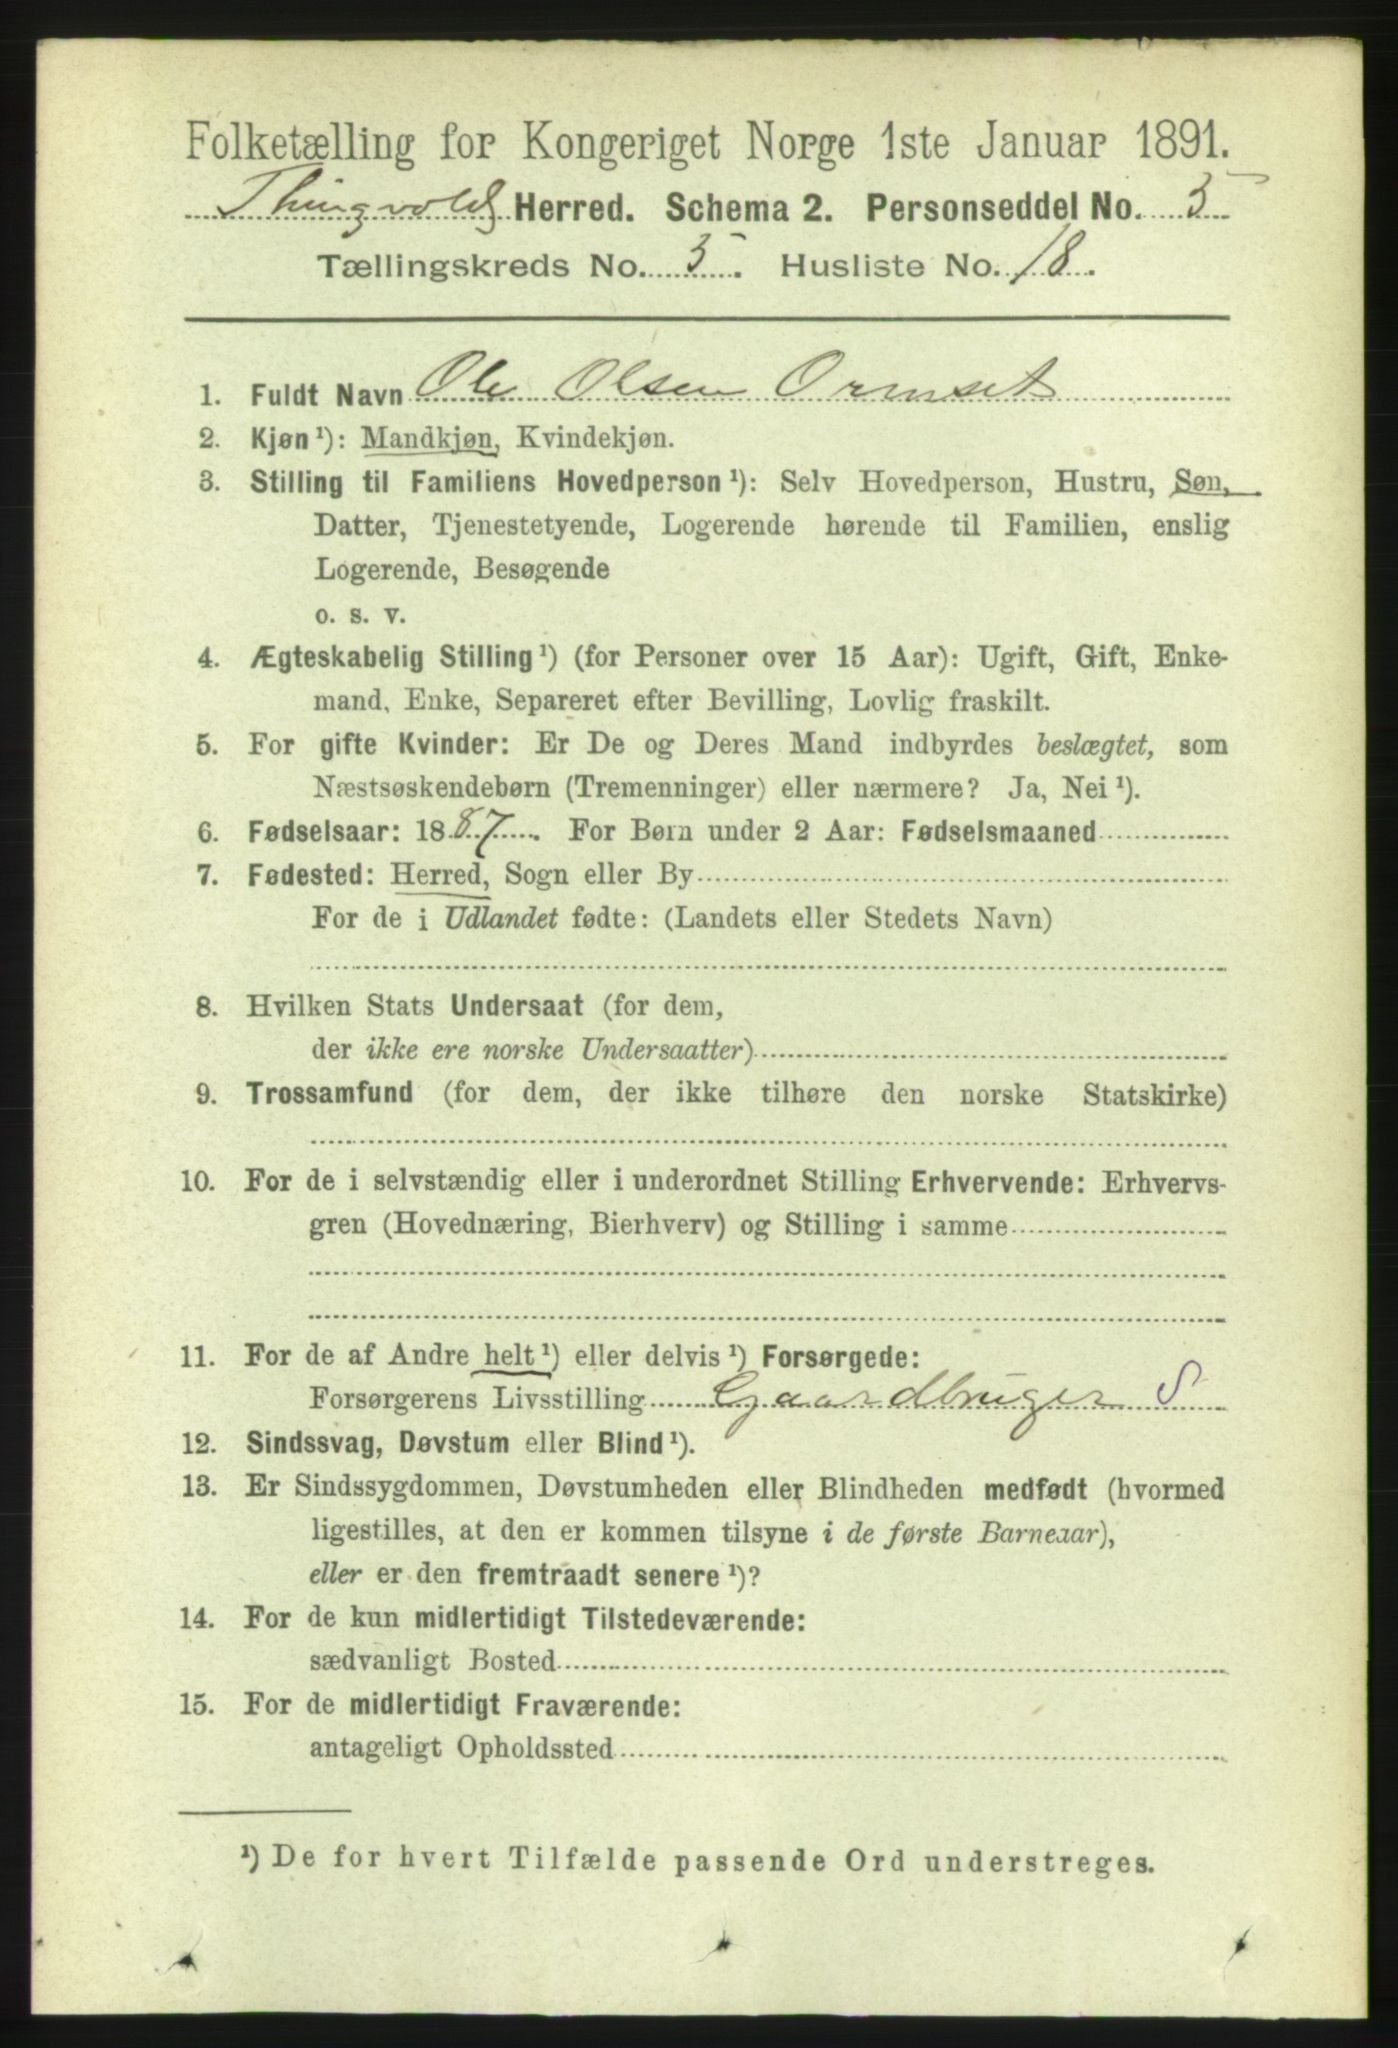 Folketælling for Kongeriget Norge 1ste Januar 1891.
Thingvolds Herred. Schema 2. Personseddel No. 5
Tællingskreds No. 5. Husliste No. 18.
1. Fuldt Navn Ole Olsen Ormset
2. Kjøn¹): Mandkjøn, Kvindekjøn.
3. Stilling til Familiens Hovedperson¹): Selv Hovedperson, Hustru, Søn,
Datter, Tjenestetyende, Logerende hørende til Familien, enslig
Logerende, Besøgende
o. s. v.
4. Ægteskabelig Stilling¹) (for Personer over 15 Aar): Ugift, Gift, Enke-
mand, Enke, Separeret efter Bevilling, Lovlig fraskilt.
5. For gifte Kvinder: Er De og Deres Mand indbyrdes beslægtet, som
Næstsøskendebørn (Tremenninger) eller nærmere? Ja, Nei¹).
6. Fødselsaar: 1887. For Børn under 2 Aar: Fødselsmaaned
7. Fødested: Herred, Sogn eller By
For de i Udlandet fødte: (Landets eller Stedets Navn)
8. Hvilken Stats Undersaat (for dem,
der ikke ere norske Undersaatter)
9. Trossamfund (for dem, der ikke tilhøre den norske Statskirke)
10. For de i selvstændig eller i underordnet Stilling Erhvervende: Erhvervs-
gren (Hovednæring, Bierhverv) og Stilling i samme
11. For de af Andre helt¹) eller delvis¹) Forsørgede:
Forsørgerens Livsstilling Gaardbruger S
12. Sindssvag, Døvstum eller Blind¹).
13. Er Sindssygdommen, Døvstumheden eller Blindheden medfødt (hvormed
ligestilles, at den er kommen tilsyne i de første Barneaar),
eller er den fremtraadt senere¹)?
14. For de kun midlertidigt Tilstedeværende:
sædvanligt Bosted
15. For de midlertidigt Fraværende:
antageligt Opholdssted
¹) De for hvert Tilfælde passende Ord understreges.